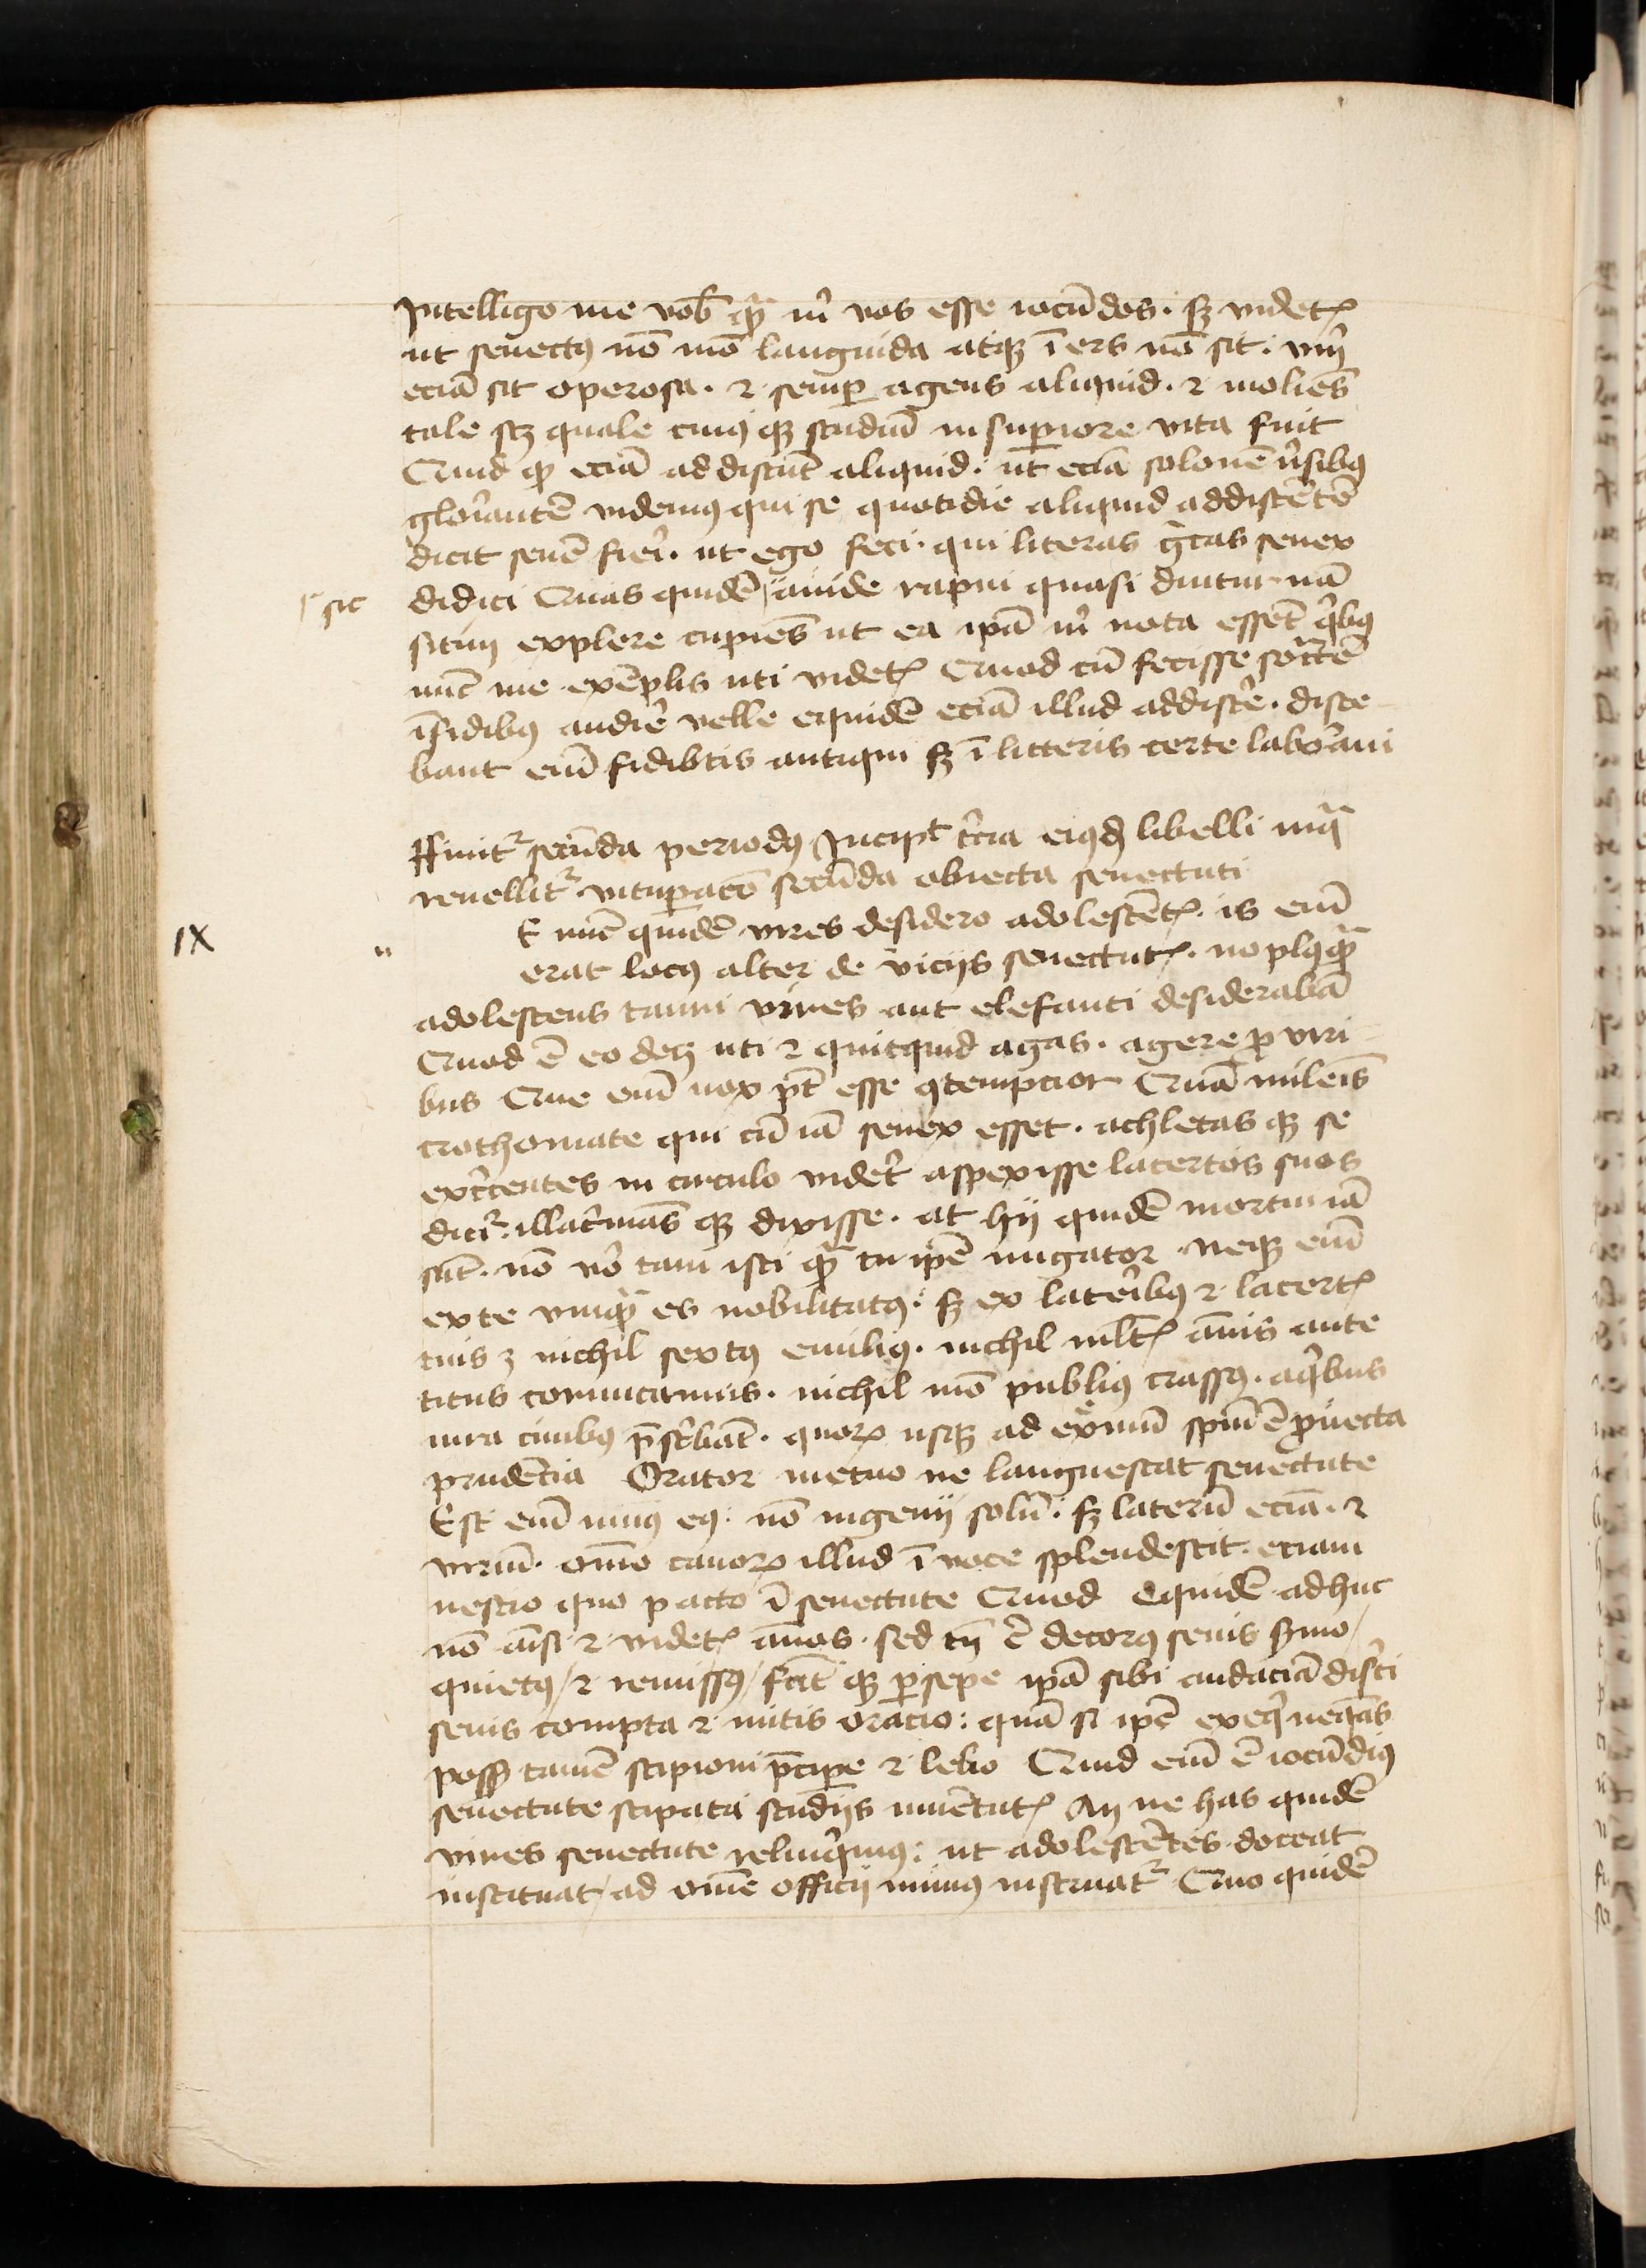 Intelligo me vob̄ qͣ m̄ vos esse iocūdos . sꝫ videtꝭ
ut senectꝰ nō mō languida atqꝫ īers nō sit . vm̄
eciā sit operosa . ⁊ semꝑ agens aliquid . ⁊ moliēs
tale scꝫ quale cuiꝰ qꝫ studiū in suꝑiore vita fuit
Quid qꝙ eciā addiscūt aliquid . ut eciā solonē ṽsibꝰ
gloriantē videmꝰ qui se quotidie aliquid addiscētē
dicit senē fieri . ut ego feci . qui literas g̃cas senex
didici Quas quidē / auide rapui quasi diuturnā
sic
sitim explere cupiēs ut ea ip̄a m̄ nota essēt qͥbꝰ
nūc me exēplis uti videtꝭ Quod cū fecisse socͣtē
ī fidibꝰ audire velle equidē eciā illud addiscere . disce
bant em̄ fidibus antiqui sꝫ ī litteris certe laboraui
Finitᷣ secūda periodꝰ Incipit t̄cia eiꝰdē libelli in qͣ
reuellitᷣ vituꝑacō secūda obiecta senectuti
IX
n
E nūc quidē vires desidero adolescētꝭ . is em̄
erat locꝰ alter de vicijs senectutꝭ . no plꝰ qͣ
adolescens tauri vires aut elefanti desiderabā
Quod ē eo decꝫ uti ⁊ quitquid agas . agere ꝓ viri
bus Que em̄ vox pt̄ esse ꝯtempcior Quā mileīs
crothomate qui cū iā senex esset . athletas qꝫ se
exercentes in circulo videret aspexisse lacertos suos
dicitᷣ . illacrimās qꝫ dixisse . at hij quidē mortui iā
sūt . nō vo tam isti qͣ tu ip̄e nugator neqꝫ em̄
ex te vnqͣ es nobilitatꝰ . sꝫ ex lateribꝰ ⁊ lacertꝭ
tuis ꝫ nichil sextꝰ emiliꝰ . nichil mltꝭ ānis ante
titus coruncamus . nichil mō publiꝰ crassꝰ . a qͥbus
iura ciuibꝰ p̄scͥbāt . quoꝝ usqꝫ ad ex̄mū sp̄m ē ꝓuecta
prudēcia Orator metuo ne languescat senectute
Est em̄ munꝰ eiꝰ nō ingenij solū . sꝫ laterū eciā . ⁊
viriū . om̄o canoꝝ illud ī voce splendescit . eciam
nescio quo pacto ī senectute Quod Equidē adhuc
nō āisi ⁊ videtꝭ ānos . sed tn̄ ē decorꝰ senis ẜmo /
quietꝰ / ⁊ remissꝰ / facit qꝫ ꝑsepe ip̄a sibi audaciā disͤti
senis compta ⁊ mitis oracio : quā si ip̄e exeqͥ neqͣas
possꝫ tamē scipioni p̄cipe ⁊ lelio Quid em̄ ē iocūdiꝰ
senectute stipata studijs iuuētutꝭ An ne has quidē
vires senectute relinqͥmꝰ : ut adolescētes doceat
instituat / ad om̄e officij munus instruatᷣ Quo quidē